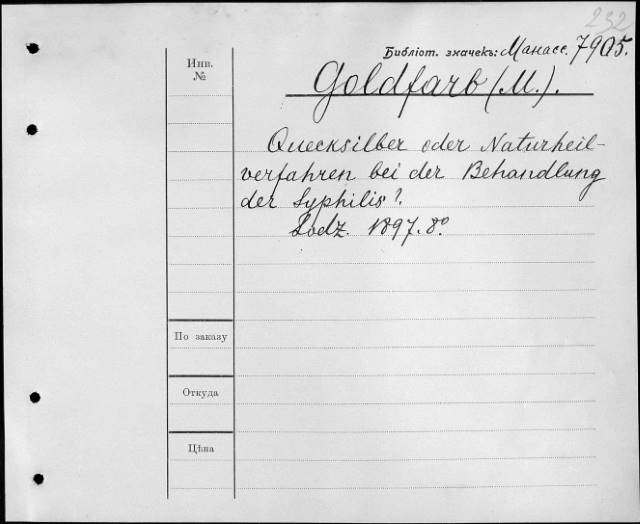 232
Библіот. значекъ: Манасс. 7905.
Инв.
№
Goldfarb (M.).
Quecksilber oder Naturheil-
verfahren bei der Behandlung
der Syphilis?.
Lodz. 1897. 8º.
По заказу
Откуда
Цѣна